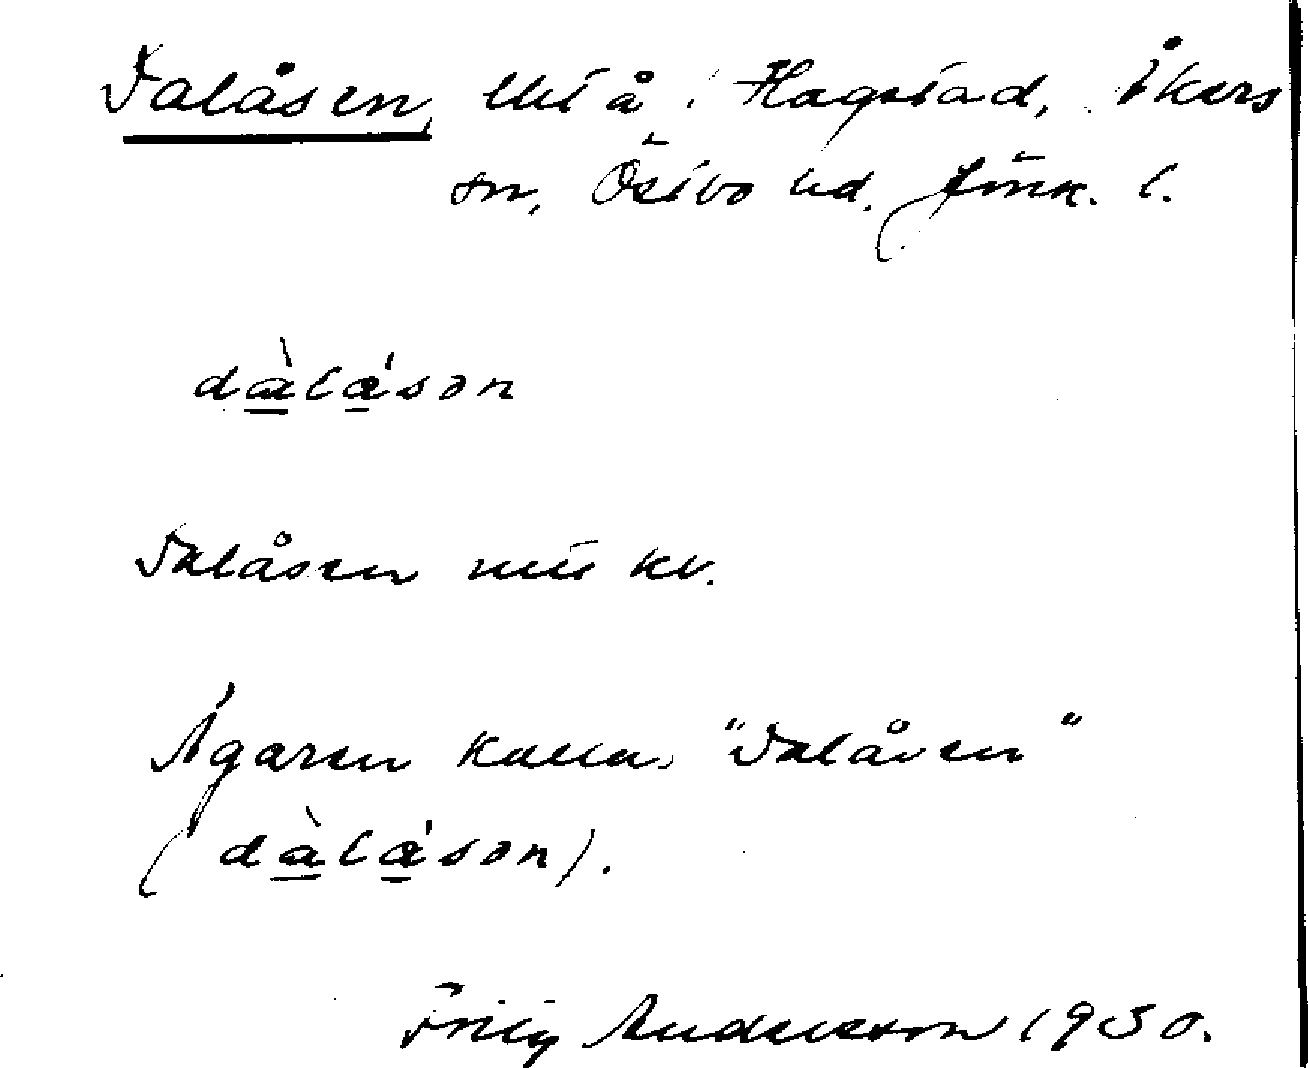 Dalåsen, lht å Hagstad, Åkers
sn, Östbo hd. Jönk. l.
dàlásən
Dalåsen mtl kv.
Ägaren kallar "Dalåsen"
(dàlásən).
Andersson 1930.